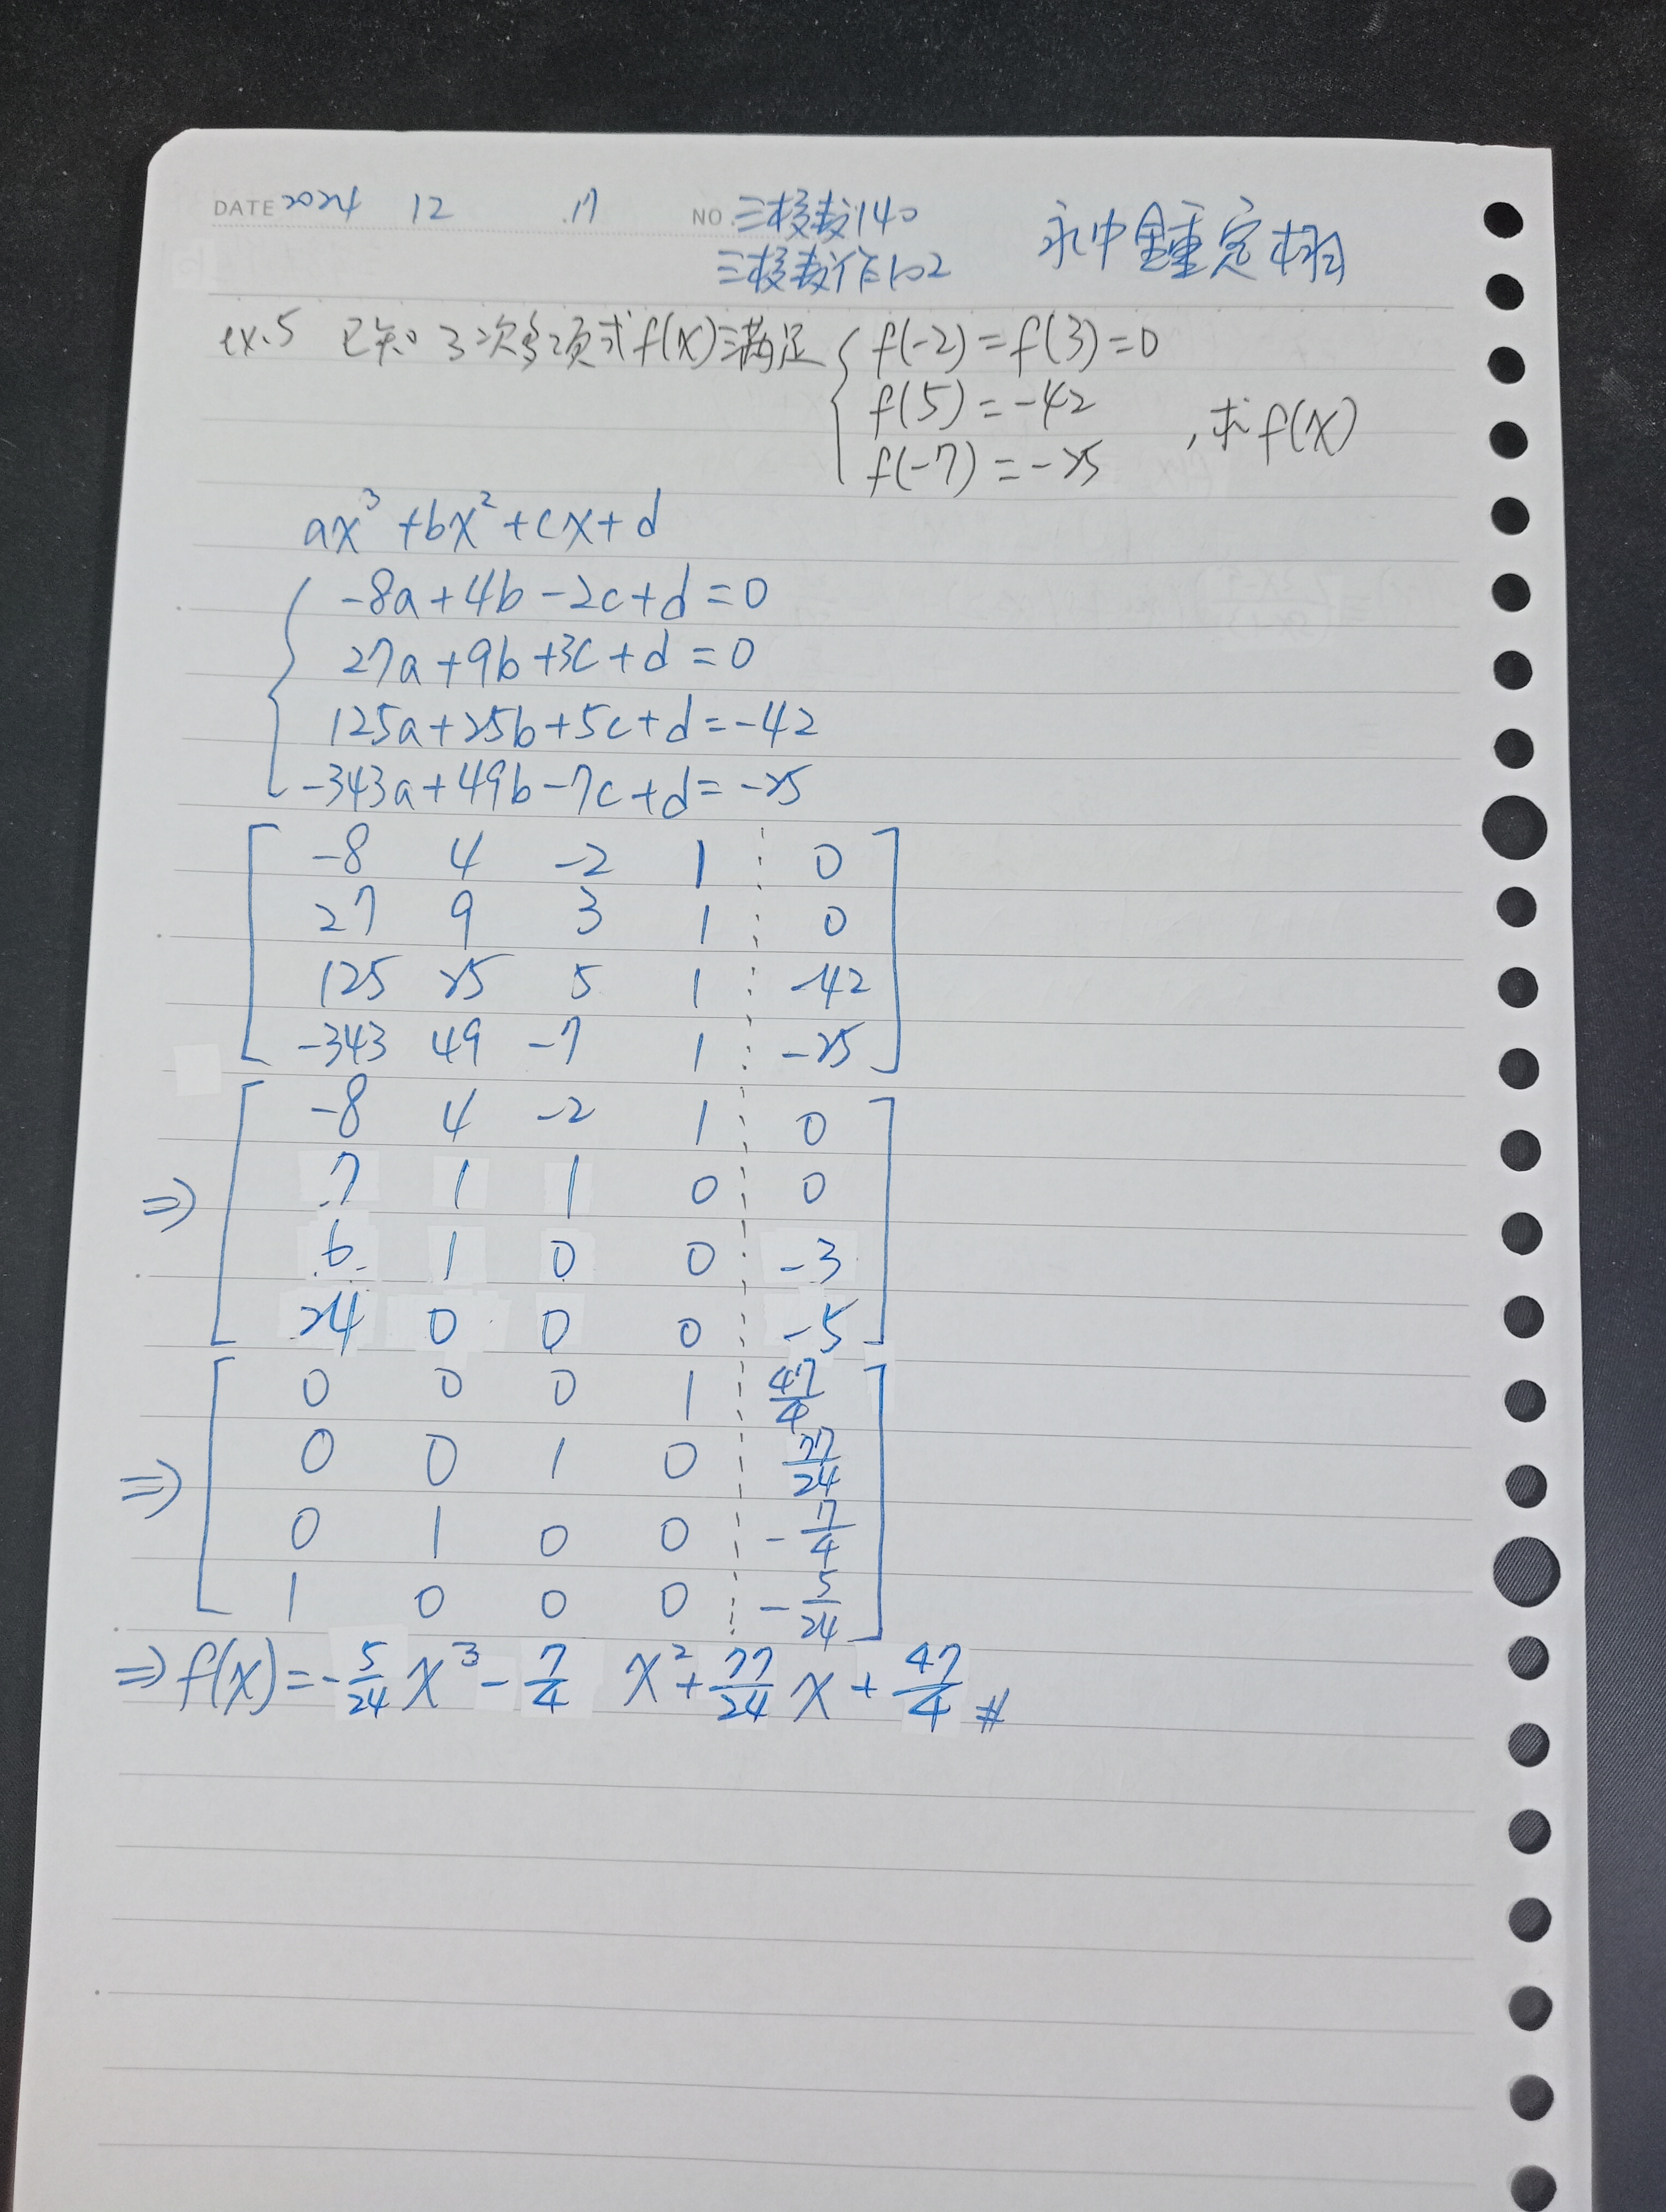 DATE 2024 12 .17 NO. 三板数140 永中鍾定栩
三板数作102
ex.5 已知3次多項式f(x)满足 { f(-2)=f(3)=0
f(5)=-42 , 求f(x)
f(-7)=-25
ax³+bx²+cx+d
-8a+4b-2c+d=0
27a+9b+3c+d=0
125a+25b+5c+d=-42
-343a+49b-7c+d=-25
-8 4 -2 1 0
27 9 3 1 0
125 25 5 1 -42
-343 49 -7 1 -25
-8 4 -2 1 0
⇒ 7 1 1 0 0
6 1 0 0 -3
24 0 0 0 -5
0 0 0 1 47/4
⇒ 0 0 1 0 77/24
0 1 0 0 -7/4
1 0 0 0 -5/24
⇒ f(x)=-5/24 x³-7/4 x²+77/24 x+47/4 #